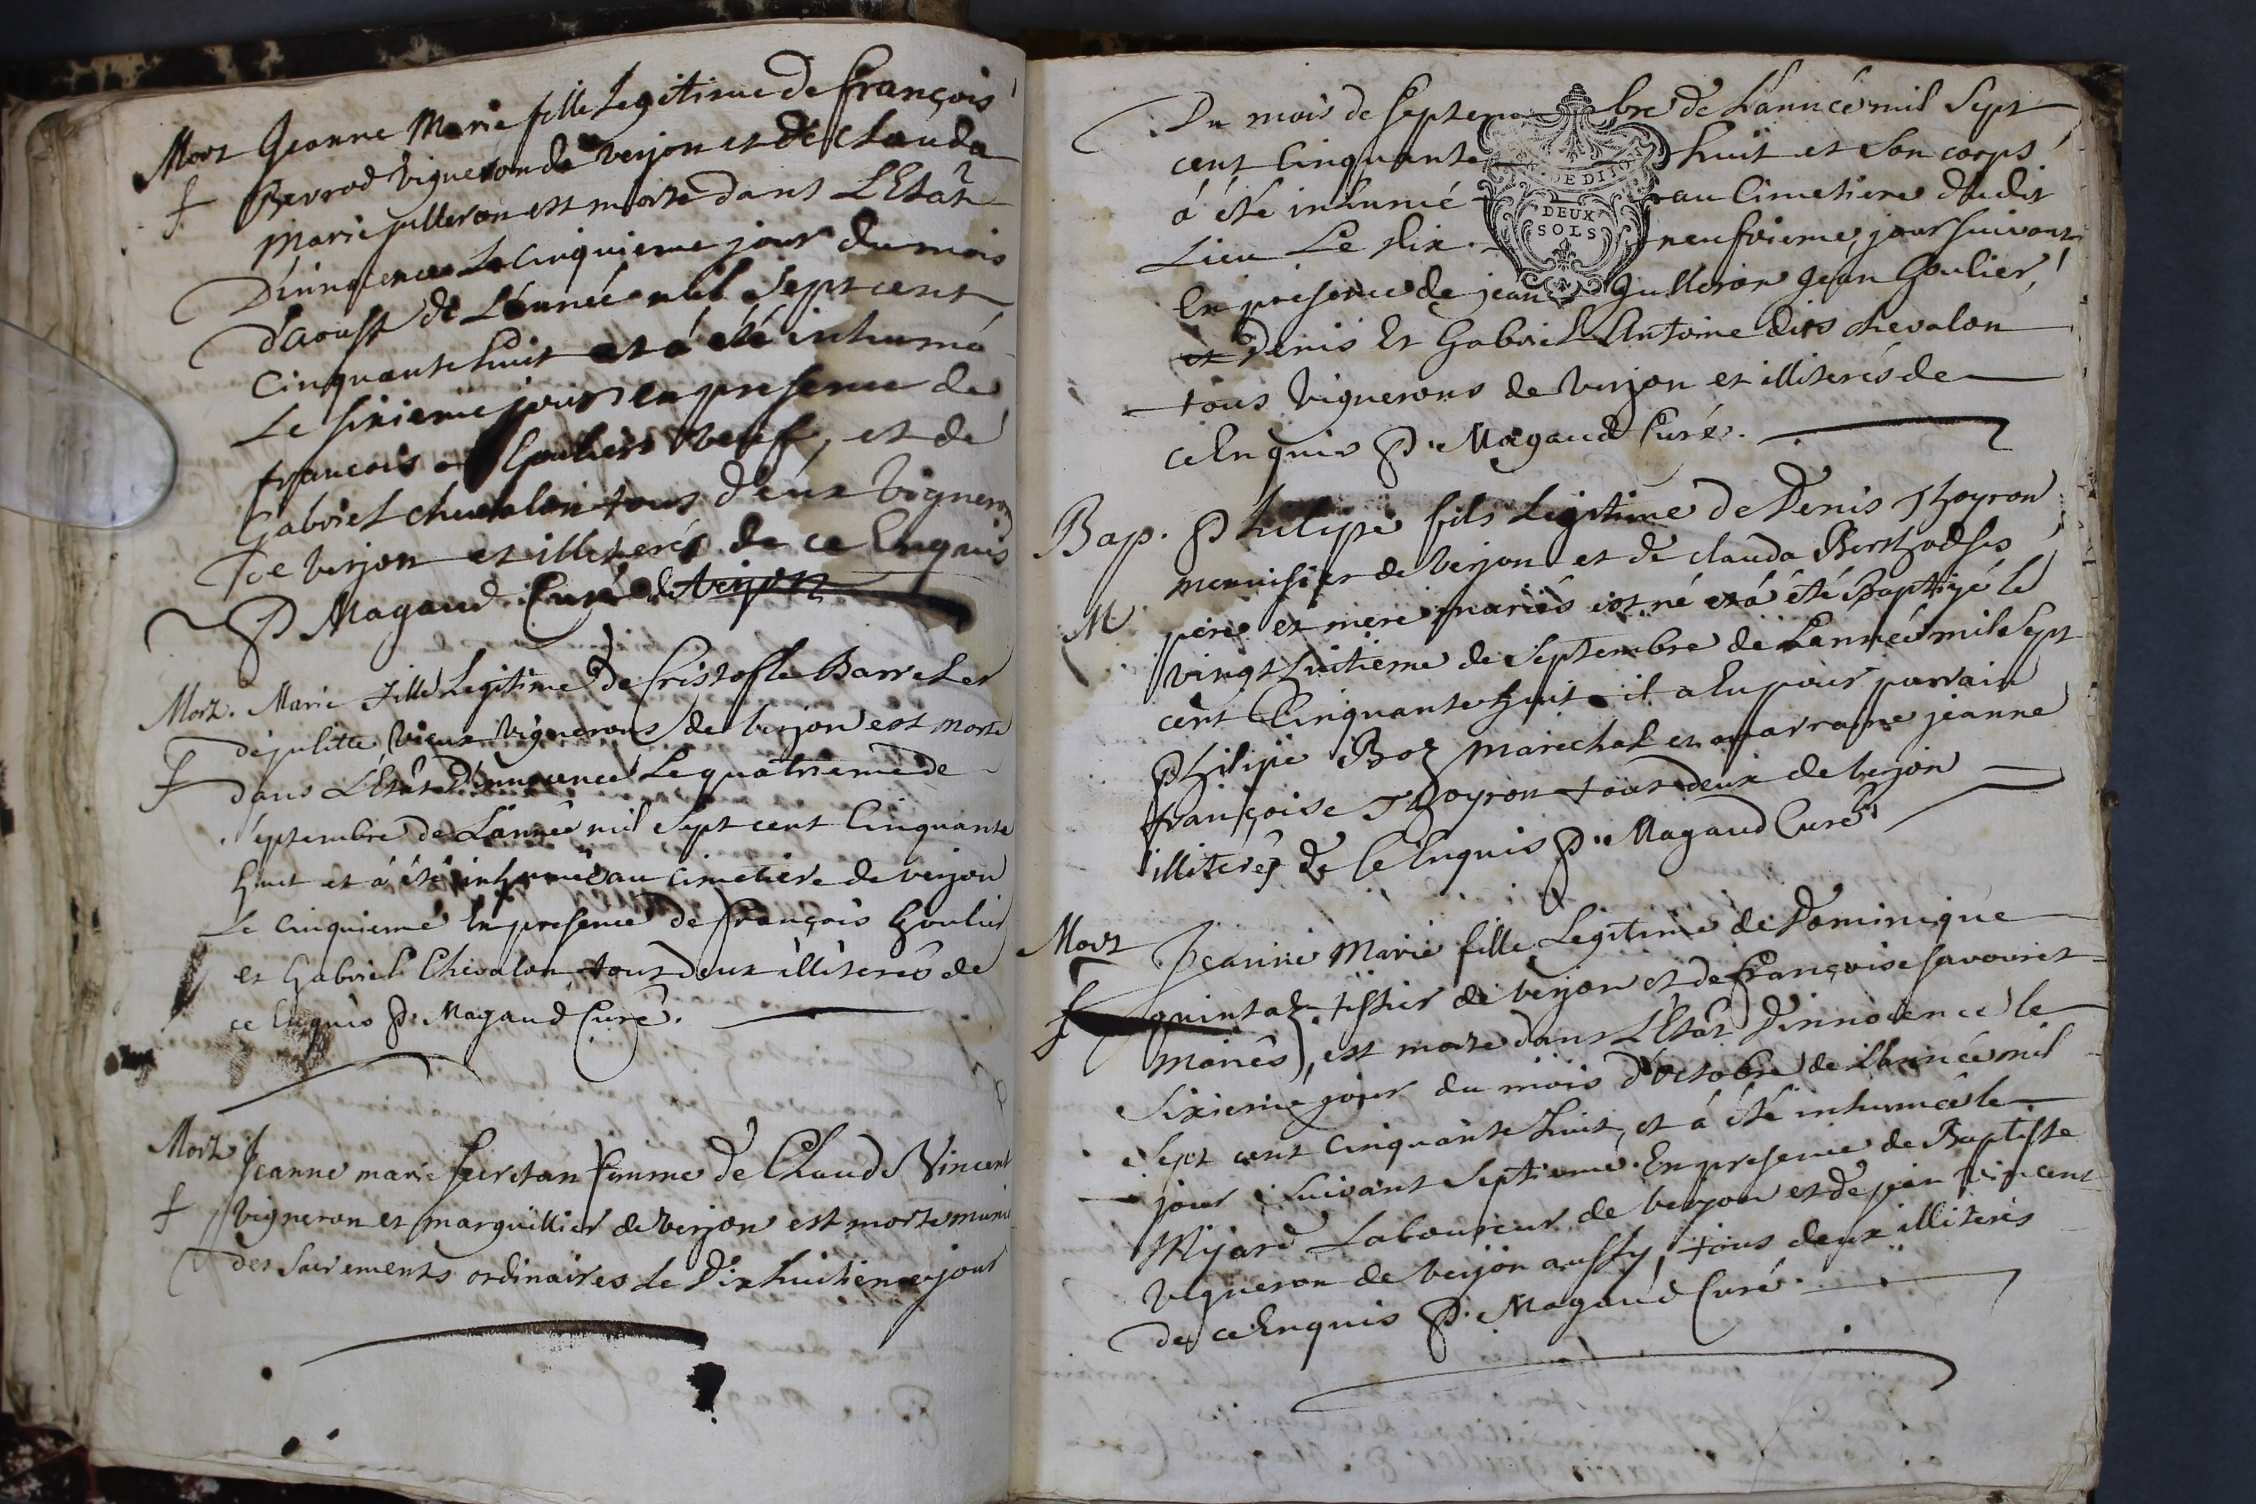 Mort Jeanne Marie fille Legitime de françois
Bevrod vigneron de verjon et de Clauda
Marie julleron est morte dans L'Etât
D'innocence Le cinquieme jour du mois
d'aoust de L'année mil sept cent
Cinquante huit et á été inhumé
Le sixieme jour en presence de
francois Goulier Veuf, et de
Gabriel chevalon tous deux vigneron
de verjon et illiterés de ce Enquis
P Magaud Curé de verjon
Mort. Marie fille Legitime de Cristofle Barrelet
de julitte vieux vignerons de verjon est morte
dans L'Etât D'innocence Le quatrieme de
septembre de L'année mil sept cent Cinquante
huit et á été inhumée au cimetiere de verjon
Le cinquieme En presence de François Goulier
et Gabriel Chevalon tous deux illiterés de
ce Enquis P. Magaud Curé.
Mort Jeanne marie femme de Claude Vincent
vigneron et marguillier de verjon est morte muni
des sacrements ordinaires Le Dix huitieme jour
Du mois de septembre de L'année mil sept
cent Cinquante huit et son corps
á été inhumé au Cimetiere dudit
Lieu Le dix neufvieme jour suivant
DEUX
SOLS
En presence de jean Gulleron jean Goulier,
et Denis Et Gabriel Antoine dits chevalon
tous vignerons de verjon et illiterés de
ce Enquis P. Magaud Curé.
Bap. Philipe fils Legitime de Denis Thoyron
menuisier de verjon et de clauda Berthod ses
M pere et mere mariés est né et á été Baptizé le
vingt huitieme de septembre de L'année mil sept
cent Cinquante huit il a Eu pour parrain
Philipe Boz marechal et marraine jeanne
françoise Thoyron tous deux de verjon
illiterés de ce Enquis P. Magaud Curé
Mort Jeanne Marie fille Legitime de Dominique
quintal tissier de verjon et de Françoise savouret
mariés, est morte dans L'Etât D'innocence le
sixieme jour du mois d'octobre de L'année mil
sept cent cinquante huit, et á été inhumée le
jour suivant septieme. En presence de Baptiste
Mijard Laboureur de verjon et de jean vincent
vigneron de verjon aussy, tous deux illiterés
de ce Enquis P. Magaud Curé